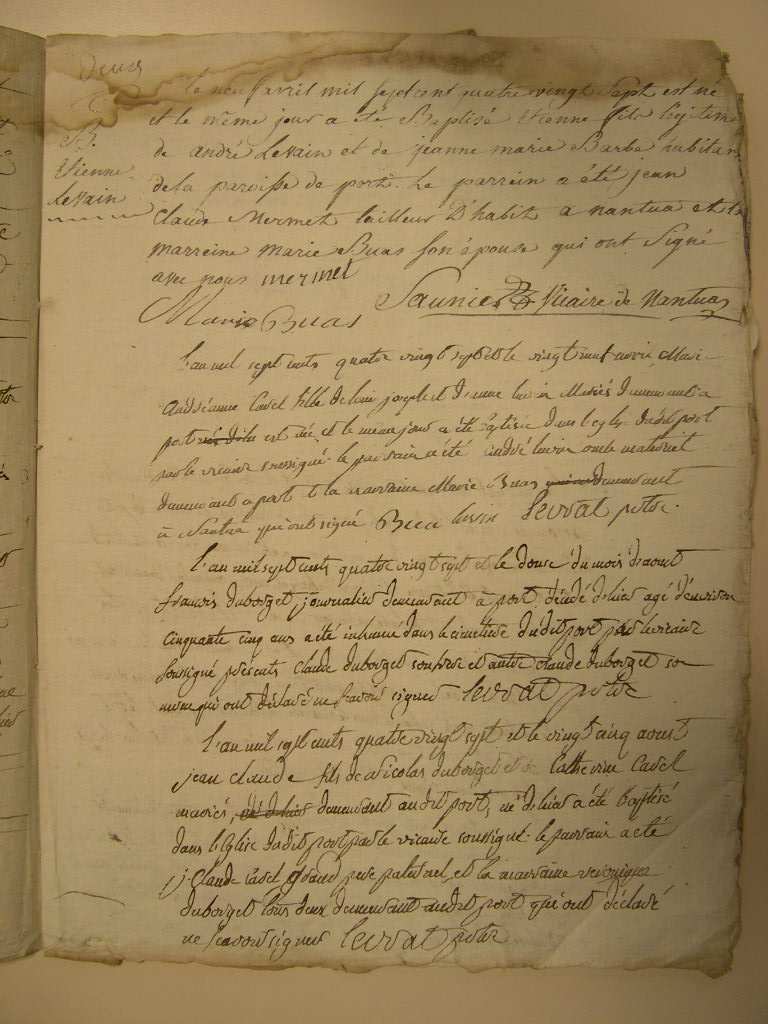 Deux
B.
Etienne
Levrain
le neuf avril mil sept cent quatre vingt sept est né
et le même jour a été Baptisé Etienne fils légitime
de andré Levrain et de jeanne marie Barbe habitans
de la paroisse de port. Le parrein a été jean
Claude Mermet tailleur D'habit a nantua et la
marreine marie Buas son épouse qui ont signé
avec nous mermet
Marie Buas Saunier Vicaire de Nantua
L'an mil sept cents quatre vingt sept et le vingt Marie
Cavel fille de joseph et mariés demeurant a
port est née, et le même jour a été Baptisée dans l'eglise dudit port
par le vicaire soussigné. le parrain a été andré oncle maternel
demeurant a port et la marraine Marie Buas demeurant
à Nantua qui ont signé Bua Levrat ptre.
L'an mil sept cents quatre vingt sept et le douze du mois d'aout
francois duborget journalier demeurant à port, décédé d'hier agé d'environ
cinquante cinq ans a été inhumé dans le cimetiere dudit port par le vicaire
soussigné présents Claude duborget son frere et autre claude duborget son
neveu qui ont déclaré ne savoir signer Levrat ptre
L'an mil sept cents quatre vingt sept et le vingt cinq aoust
jean claude fils de Nicolas duborget et de Catherine Cavel
mariés, demeurant audit port, né d'hier a été baptisé
dans l'Eglise dudit port par le vicaire soussigné. le parrain a été
j. Claude Cavel grand pere paternel, et la marraine veronique
duborget tous deux demeurant audit port qui ont déclaré
ne savoir signer Levrat ptre